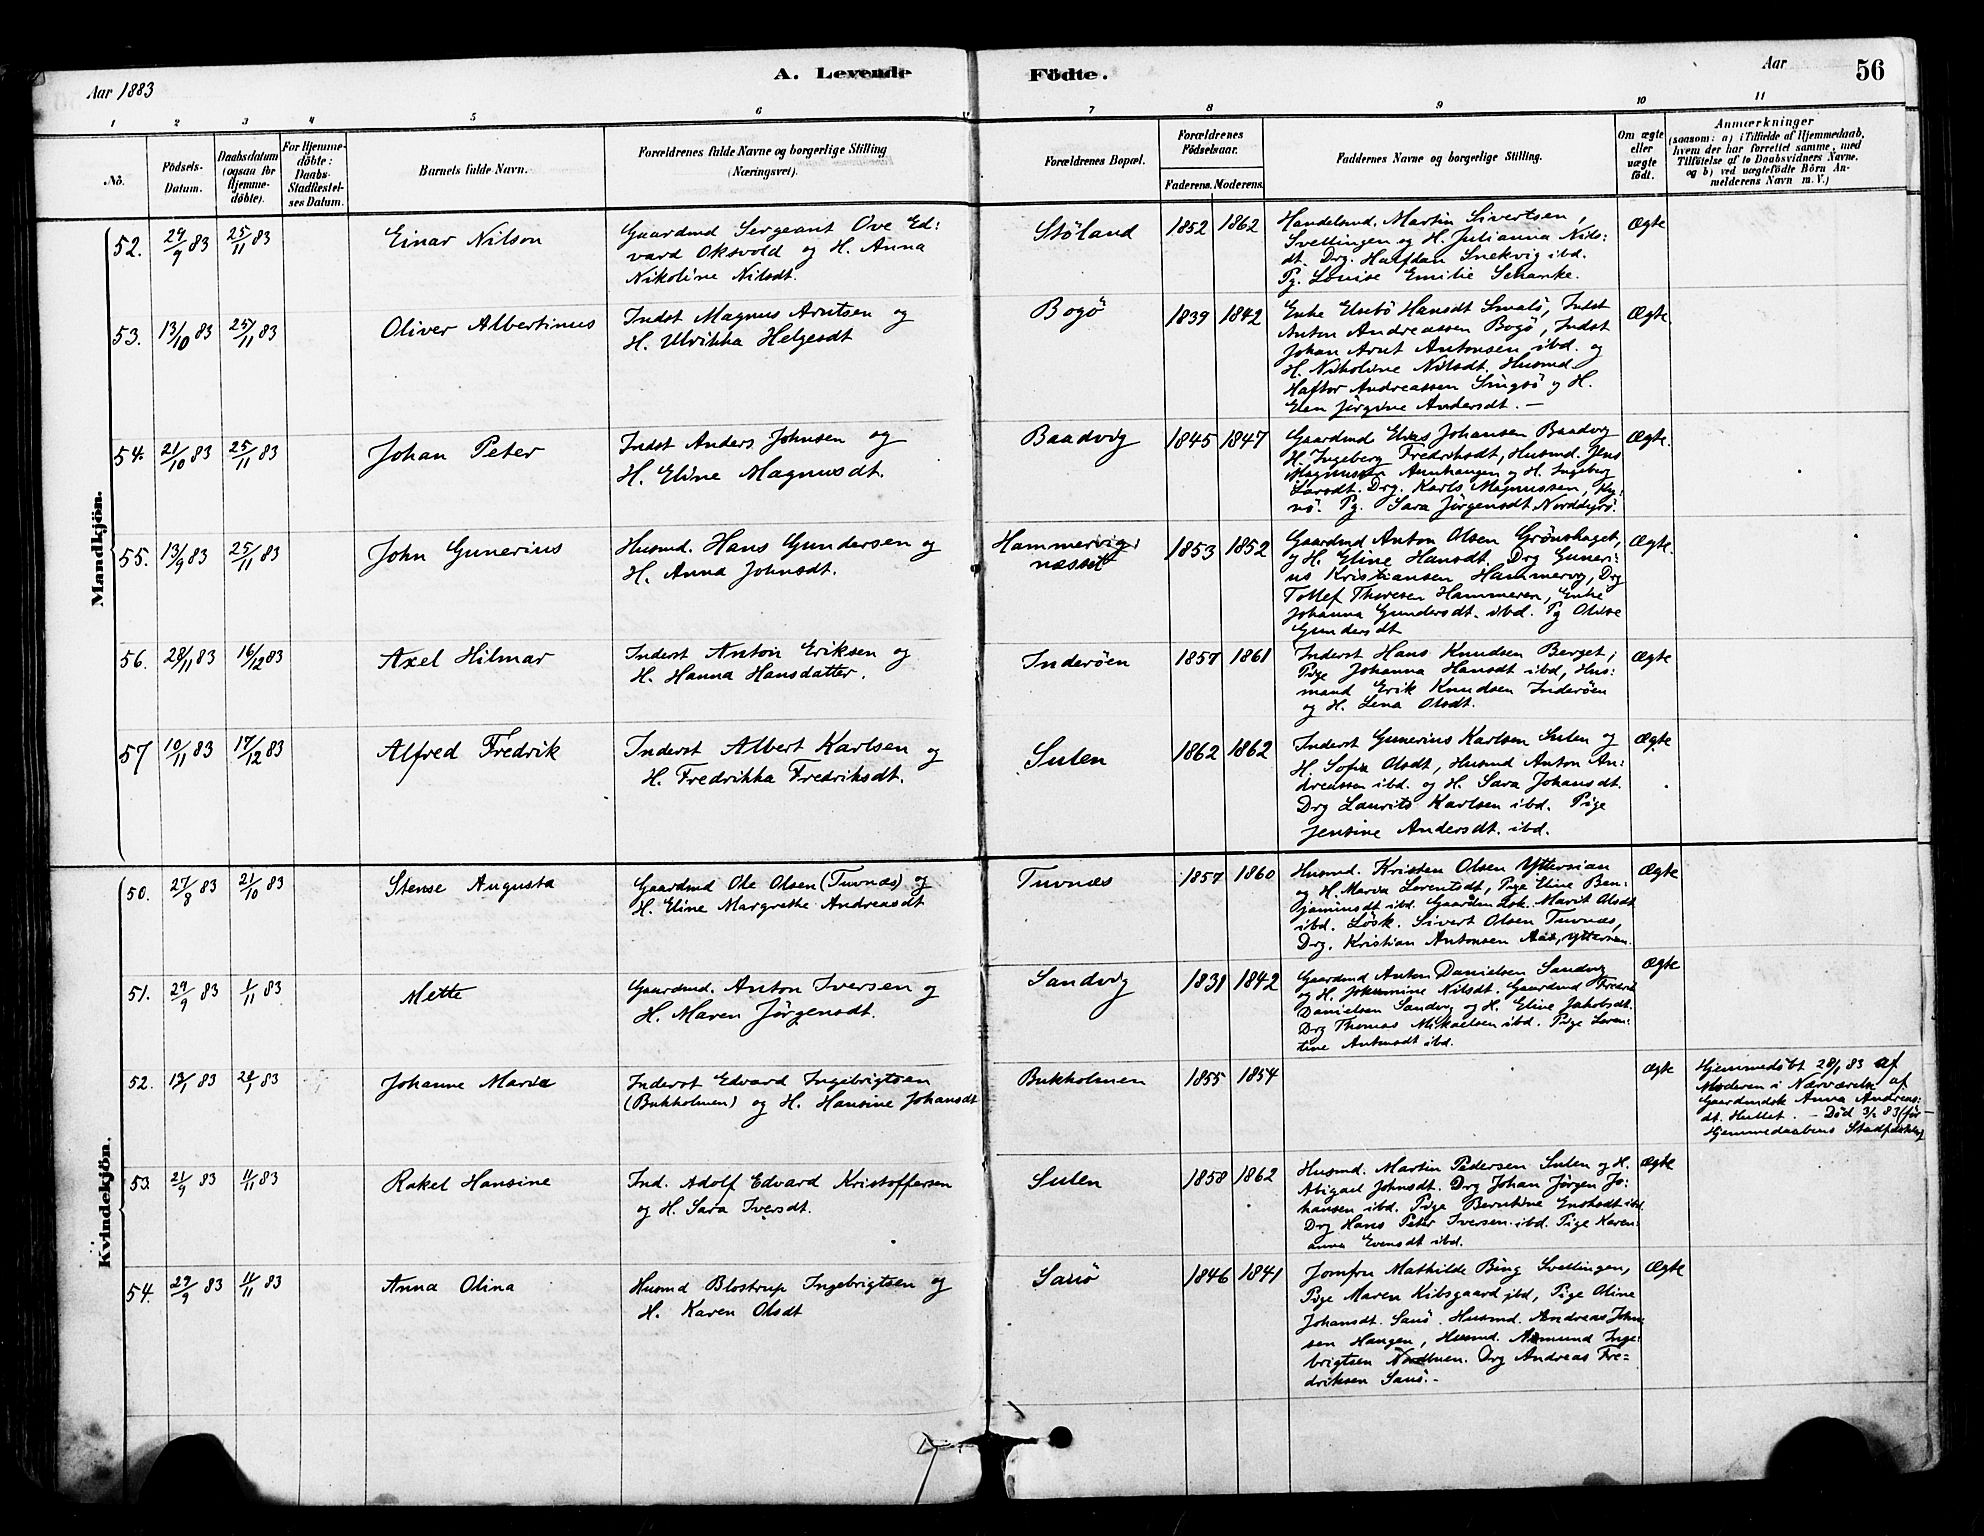 Aar 1883
A. Levende Födte.
Aar
56
1 2 3 4 5 6 7 8 9 10 11
No.
Födsels-
Datum.
Daabsdatum
(ogsaa for
Hjemme-
döbte).
For Hjemme-
döbte:
Daabs-
Stadfæstel-
ses Datum.
Barnets fulde Navn.
Forældrenes fulde Navne og borgerlige Stilling
(Næringsvei).
Forældrenes Bopæl.
Forældrenes
Födselsaar.
Faderens. Moderens.
Faddernes Navne og borgerlige Stilling.
Om ægte
eller
uægte
födt.
Anmærkninger
(saasom: a) i Tilfælde af Hjemmedaab,
hvem der har forrettet samme, med
Tilföielse af to Daabsvidners Navne,
og b) ved uægtefödte Börn An-
melderens Navn m. V.)
Mandkjön.
52. 29/9 83 25/11 83 Einar Nilson
Gaardmd Sergeant Ove Ed:
vard Oksvold og H. Anna
Nikoline Nilsdt.
Støland 1852 1862
Handelsmd. Martin Sivertsen,
Svellingen og H. Julianna Nils:
dt. Drg. Halfdan Snekvig ibd.
Pg. Louise Emilie Schanke.
Ægte
53. 13/10 83 25/11 83 Oliver Albertinus
Indst Magnus Arntsen og
H. Ulrikka Helgesdt
Bogö 1839 1842
Enke Elsebö Hansdt Smalö, Indst
Anton Andreassen Bogö, Indst
Johan Arnt Antonsen ibd. og
H. Nikoline Nilsdt. Husmd.
Haftor Andreassen Singsö og H.
Elen Jörgine Andersdt. —
Ægte
54. 21/10 83 25/11 83 Johan Peter
Indst Anders Johnsen og
H. Eline Magnusdt.
Baadvig 1845 1847
Gaardmd Elias Johansen Baadvig
H. Ingeberg Fredriksdt, Husmd. Jens
Magnussen Aunhaugen og H. Ingeberg
Larsdt. Drg. Karls Magnussen,
Pg. Sara Jörgensdt Norddyrö.
Ægte.
55. 13/9 83 25/11 83 John Gunerius
Husmd. Hans Gundersen og
H. Anna Johnsdt.
Hammervig:
næsset
1853 1852
Gaardmd Anton Olsen Grönhaget,
og H. Eline Hansdt. Drg Guneri:
us Kristiansen Hammervg, Drg
Tollef Thoresen Hammeren, Enke
Johanna Gundersdt. ibd. Pg Olise
Gundersdt
Ægte.
56. 28/11 83 16/12 83 Axel Hilmar
Inderst Anton Eriksen og
H. Hanna Hansdatter.
Inderöen 1857 1861
Inderst Hans Knudsen Berget,
Pige Johanna Hansdt ibd, Hus:
mand Erik Knudsen Inderöen
og H. Lena Olsdt.
Ægte
57 10/11 83 17/12 83 Alfred Fredrik
Inderst Albert Karlsen og
H. Fredrikka Fredriksdt.
Sulen 1862 1862
Inderst Gunerius Karlsen Sulen og
H. Sofia Olsdt, Husmd Anton An:
dreassen ibd. og H. Sara Johansdt.
Drg Laurits Karlsen ibd. Pige
Jensine Andersdt. ibd.
Ægte
Kvindekjön.
50. 27/8 83 21/10 83 Stense Augusta
Gaardmd Ole Olsen (Tuvnæs) og
H. Eline Margrethe Andreasdt
Tuvnæs 1857 1860
Husmd. Kristen Olsen Yttersian
og H. Maria Lorentsdt, Pige Eline Ben:
jaminsdt ibd. Marit Olsdt
ibd. Løsk. Sivert Olsen Tuvnæs,
Drg. Kristian Antonsen Aas, Yttersian.
Ægte
51. 29/9 83 1/11 83 Mette
Gaardmd. Anton Iversen og
H. Maren Jörgensdt.
Sandvig 1831 1842
Gaardmd Anton Danielsen Sandvg
og H. Nilsdt. Gaardmd Fredrik
Danielsen Sandvg og H. Eline Jakobsdt.
Drg Thomas Mikaelsen ibd. Pige Loren:
tine Antonsdt ibd.
Ægte
52. 13/1 83 28/1 83 Johanne Maria
Inderst Edvard Ingebrigtsen
(Bukholmen) og H. Hansine Johansdt
Bukholmen 1855 1854
Ægte
Hjemmedöbt 28/1 83 af
Moderen i Nærværelse af
Gaardmdsk Anna Andreas:
dt. Hullet. — Död 3/2 83 (før
Hjemmedaabens Stadfæstelse)
53. 21/9 83 11/11 83 Rakel Hansine
Ind. Adolf Edvard Kristoffersen
og H. Sara Iversdt.
Sulen 1858 1862
Husmd. Martin Pedersen Sulen og H.
Abigael Johnsdt. Drg Johan Jörgen Jo:
hansen ibd. Pige Berntine ibd.
Drg Hans Peter Iversen ibd. Pige Karen
anna Evensdt ibd.
Ægte
54. 29/9 83 11/11 83 Anna Olina
Husmd Blostrup Ingebrigtsen og
H. Karen Olsdt
Sauö 1846 1841
Jomfru Mathilde Bing Svellingen,
Pige Maren Kibsgaard ibd, Pige Oline
Johansdt. Sauö. Husmd. Andreas John:
sen Haugen, Husmd. Asmund Inge:
brigtsen Nordbuen. Drg Andreas Fre=
driksen Sauö. -
Ægte